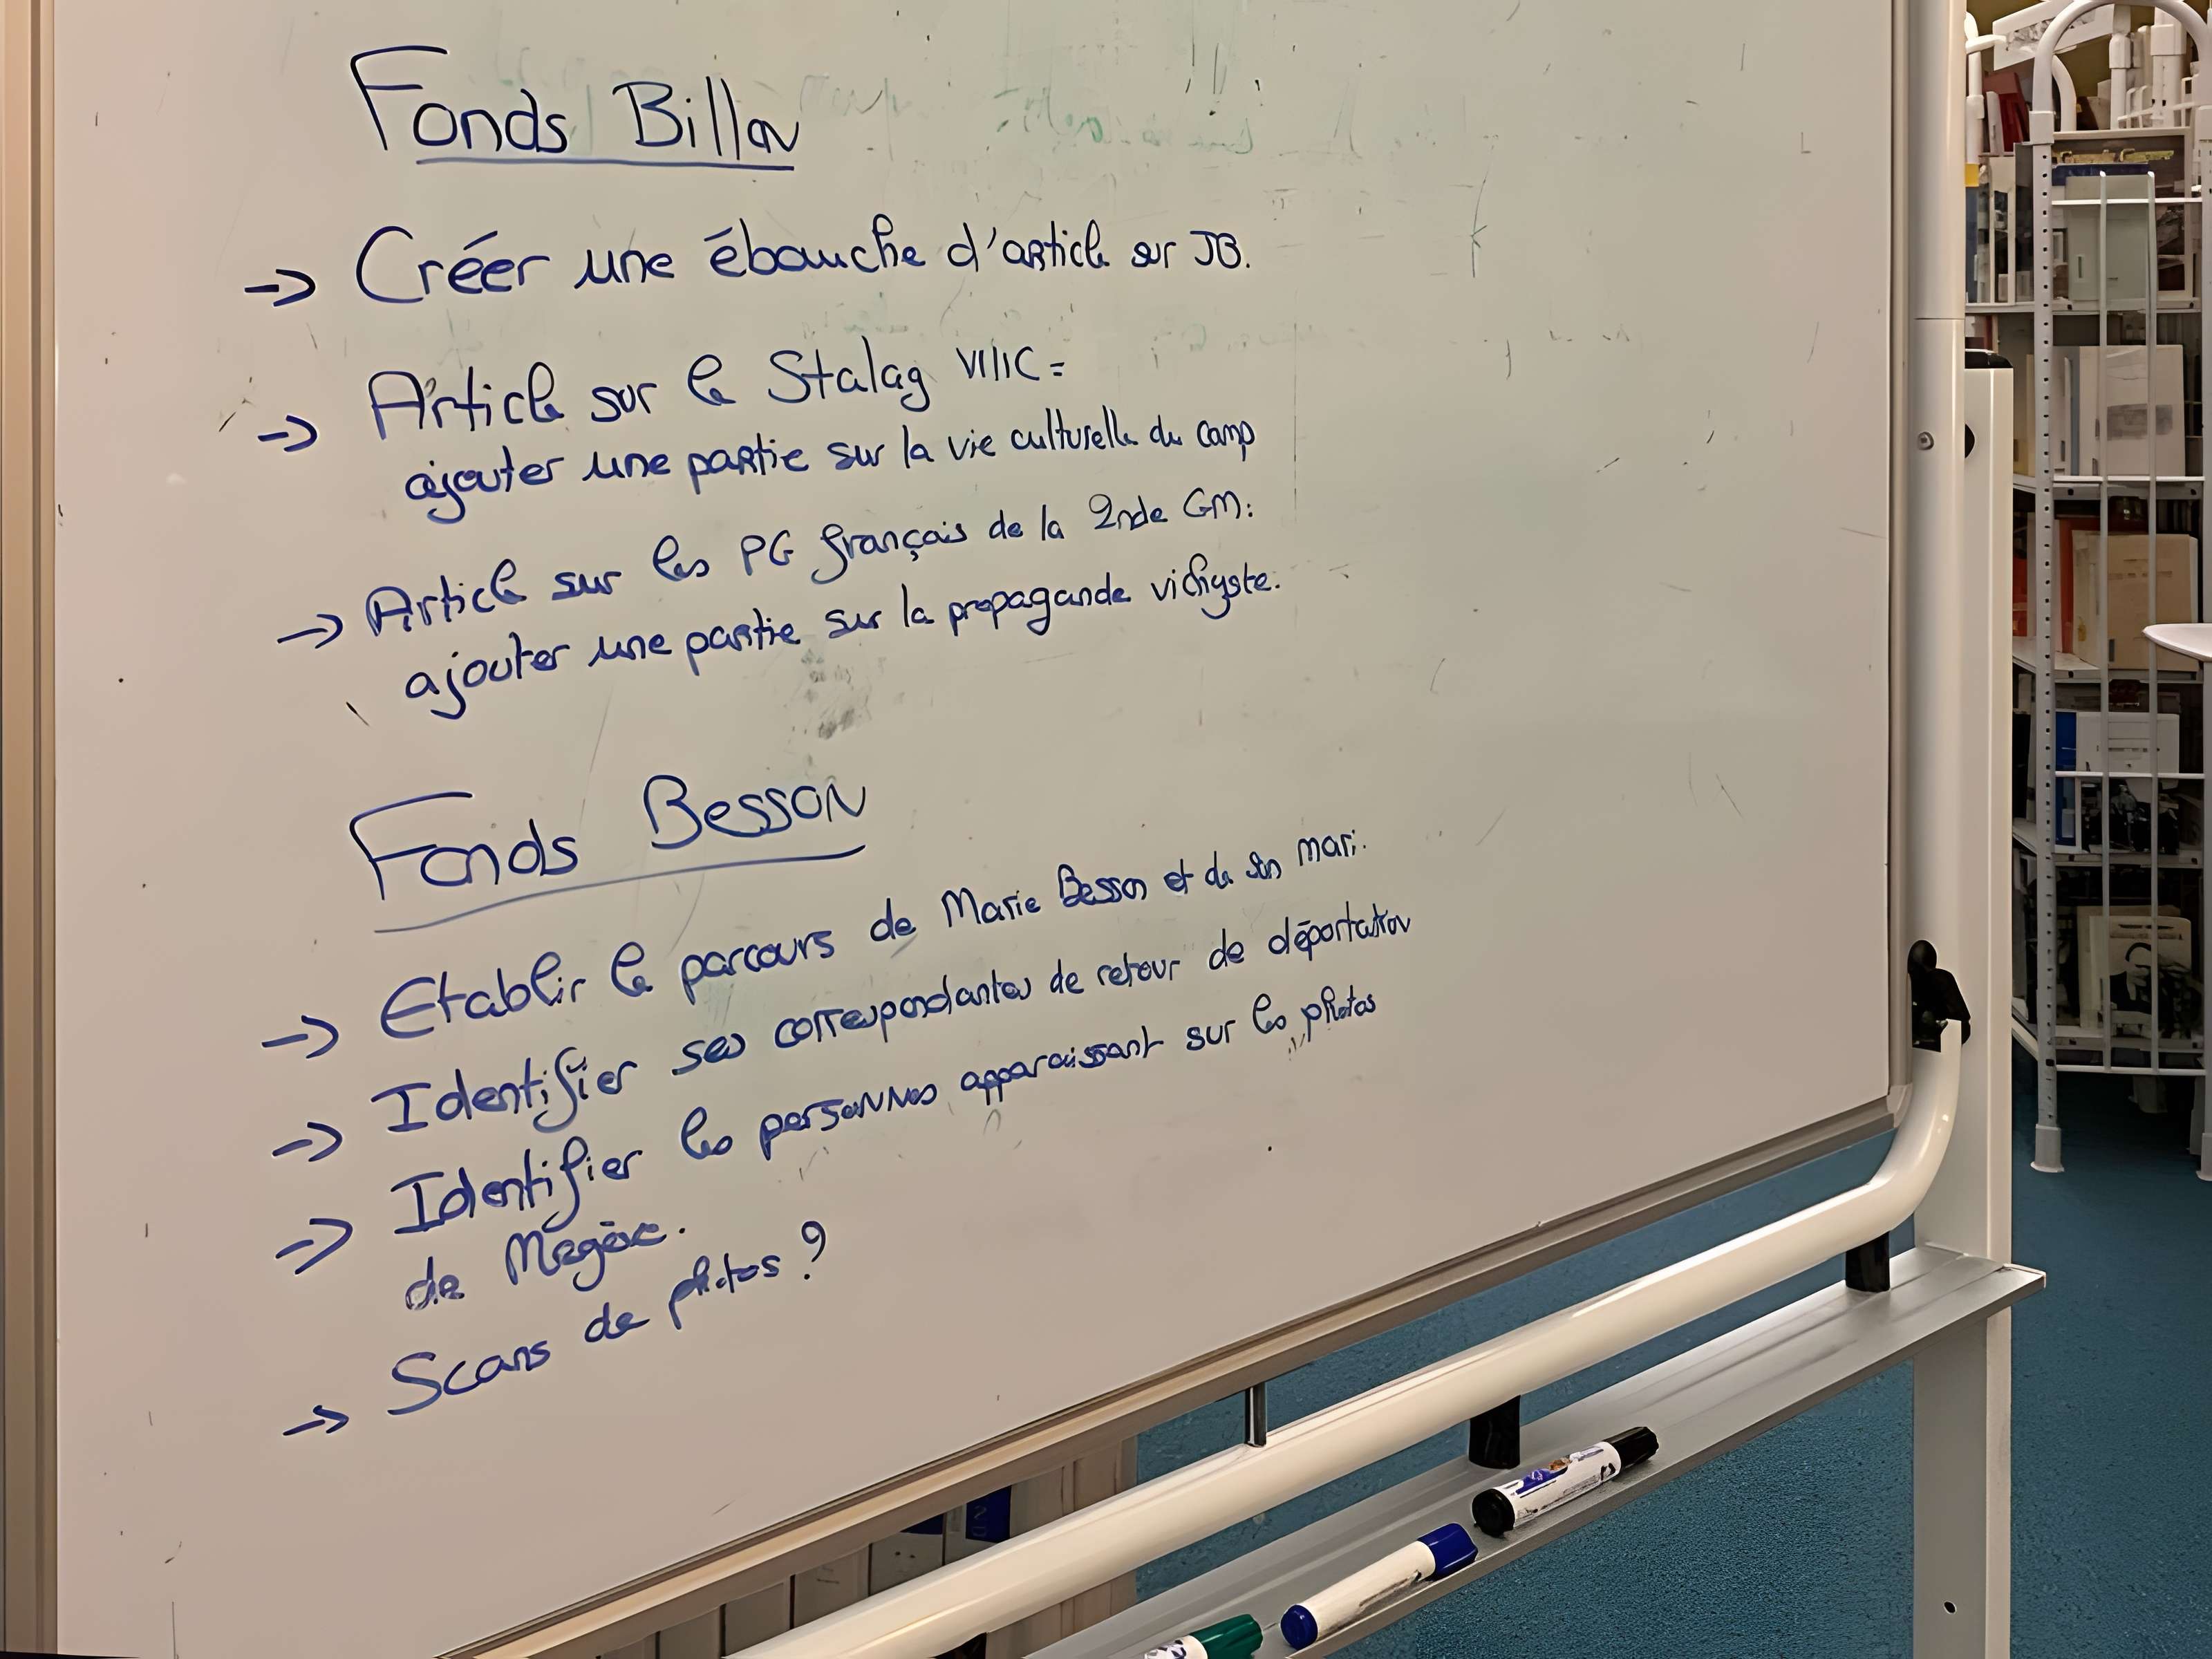 Fonds Billon
→ Créer une ébauche d'article sur JB.
→ Article sur le Stalag VIIIC =
ajouter une partie sur la vie culturelle du camp
→ Article sur les PG français de la 2nde GM:
ajouter une partie sur la propagande vichyste.
Fonds Besson
→ Etablir le parcours de Marie Besson et de son mari.
→ Identifier ses correspondantes de retour de déportation
→ Identifier les personnes apparaissant sur les photos
de Megève.
→ Scans de photos ?